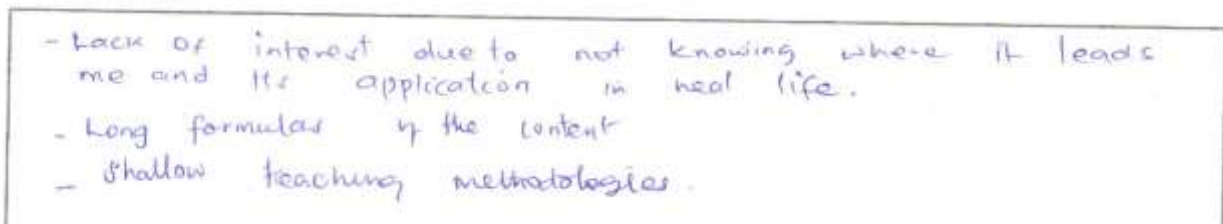 - Lack of interest due to not knowing where it leads
me and its application in real life.
- Long formulas of the content
- Shallow teaching methodologies.